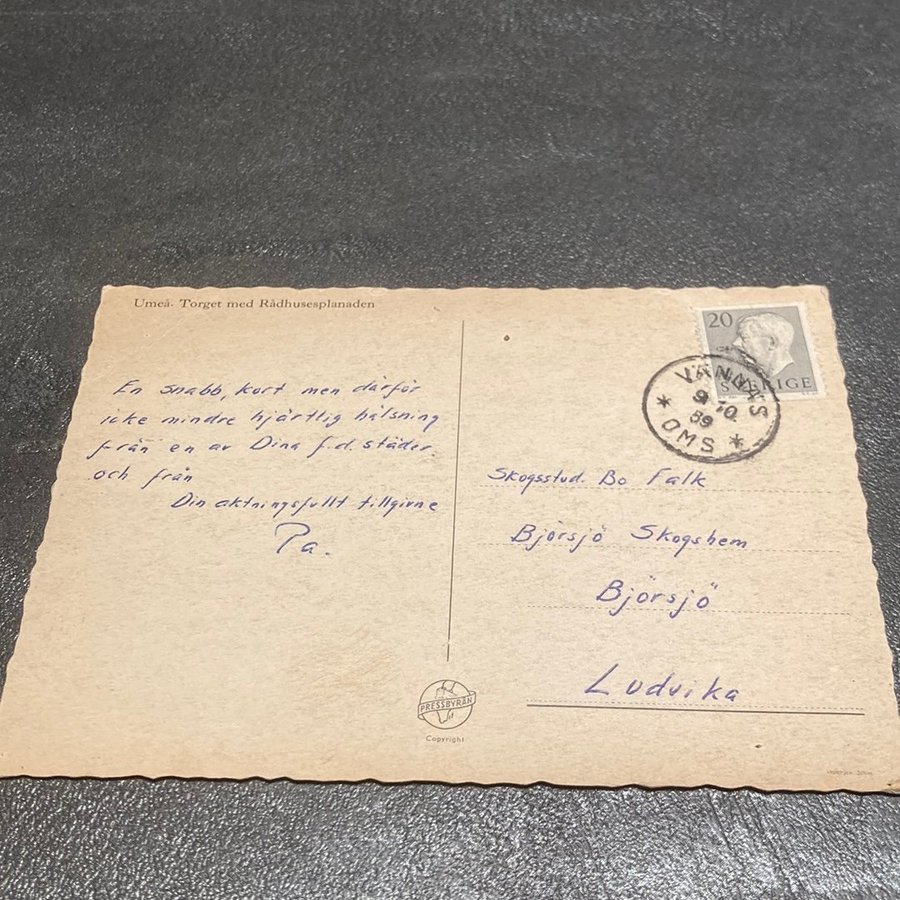 Umeå. Torget med Rådhusesplanaden
En snabb, kort men därför
icke mindre hjärtlig hälsning
från en av Dina f.d. städer
och från
Din aktningsfullt tillgivne
Pa.
20
SVERIGE
VÄNNÄS
9 10
59
OMS
Skogsstud. Bo Falk
Björsjö Skogshem
Björsjö
Ludvika
PRESSBYRÅN
Copyright